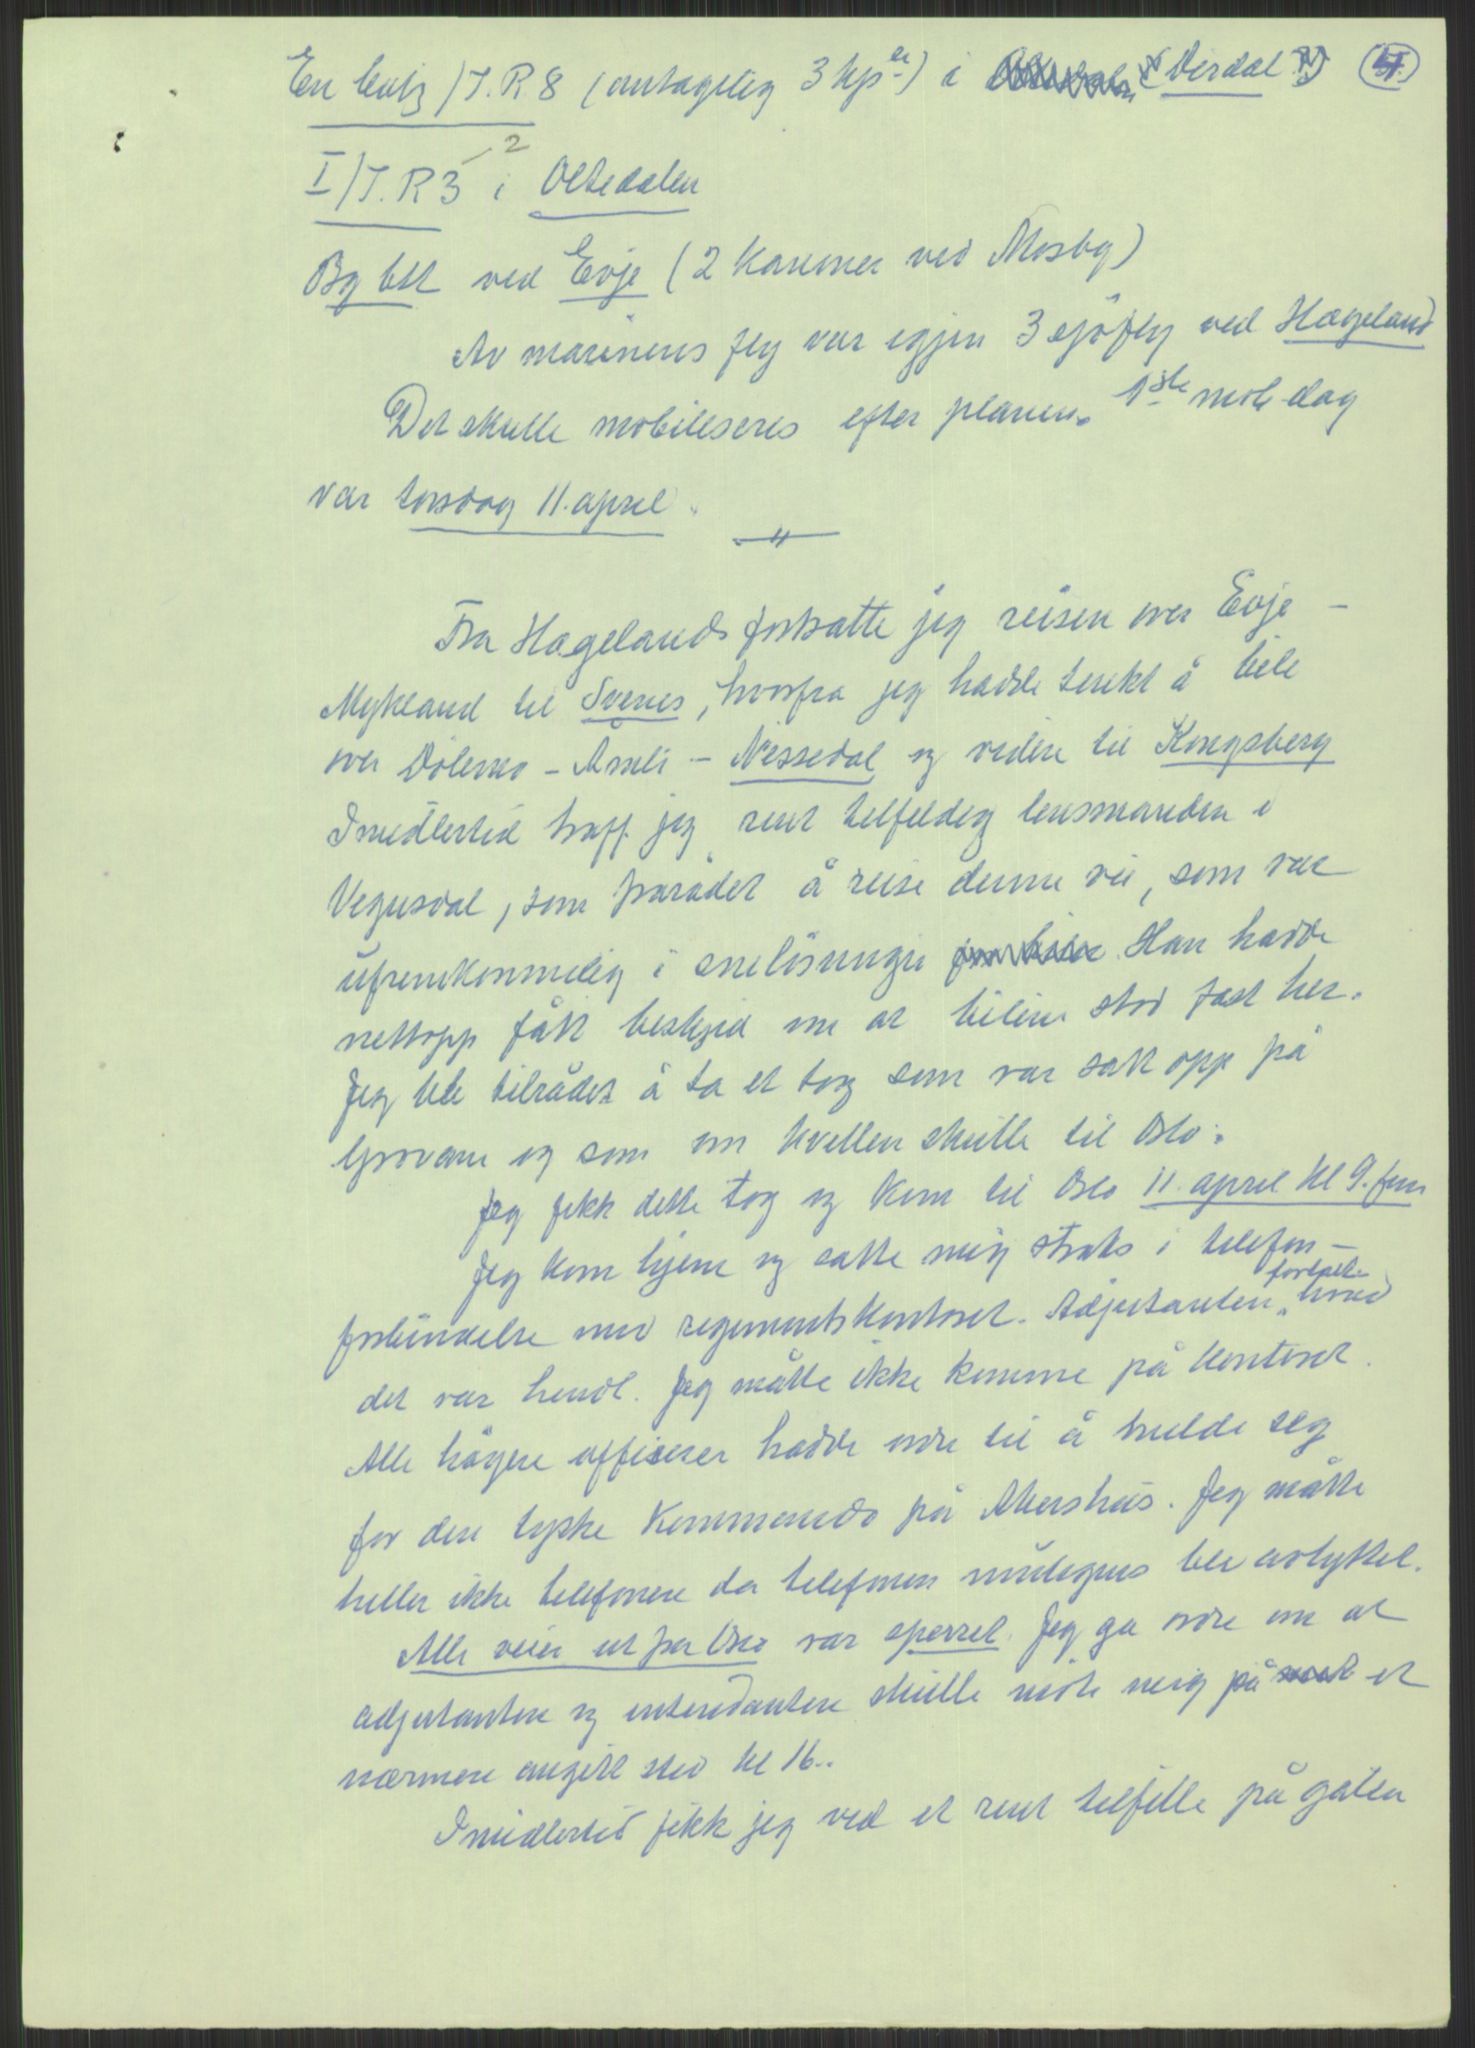 En batj/I.R. 8 (antagelig 3 kp er) i Dirdal 4.
I/I.R 3 2 i Oltedalen
Bg btt ved Evje (2 kanoner ved Mosby)
Av marinens fly var igjen 3 sjöfly ved Hægeland
Det skulle mobiliseres efter planen. 1ste mob dag
var torsdag 11. april.
Fra Hægelands fortsatte jeg reisen over Evje -
Mykland til Svenes, hvorfra jeg hadde tenkt å bile
over Dölemo - Åmli - Nissedal og videre til Kongsberg
Imidlertid traff jeg rent tilfeldig lensmanden i
Vegusdal, som frarådet å reise denne vei, som var
ufremkommelig i snelösningen for biler. Han hadde
nettopp fått beskjed om at bilene stod fast her.
Jeg ble tilrådet å ta et tog som var satt opp på
Grovane og som om kvellen skulle til Oslo.
Jeg fikk dette tog og kom til Oslo 11. april kl 9. fm
Jeg kom hjem og satte mig straks i telefon-
forbindelse med regimentskontoret. Adjutanten fortalte hvad
det var hendt. Jeg måtte ikke komme på kontoret.
Alle högere offiserer hadde ordre til å melde seg
for den tyske Kommando på Akershus. Jeg måtte
heller ikke telefonere da telefonen muligens ble avlyttet.
Alle veier ut fra Oslo var sperret. Jeg ga ordre om at
adjutanten og intendanten skulle möte meig på et
nærmere angitt sted kl 16..
Imidlertid fikk jeg ved et rent tilfelle på gaten